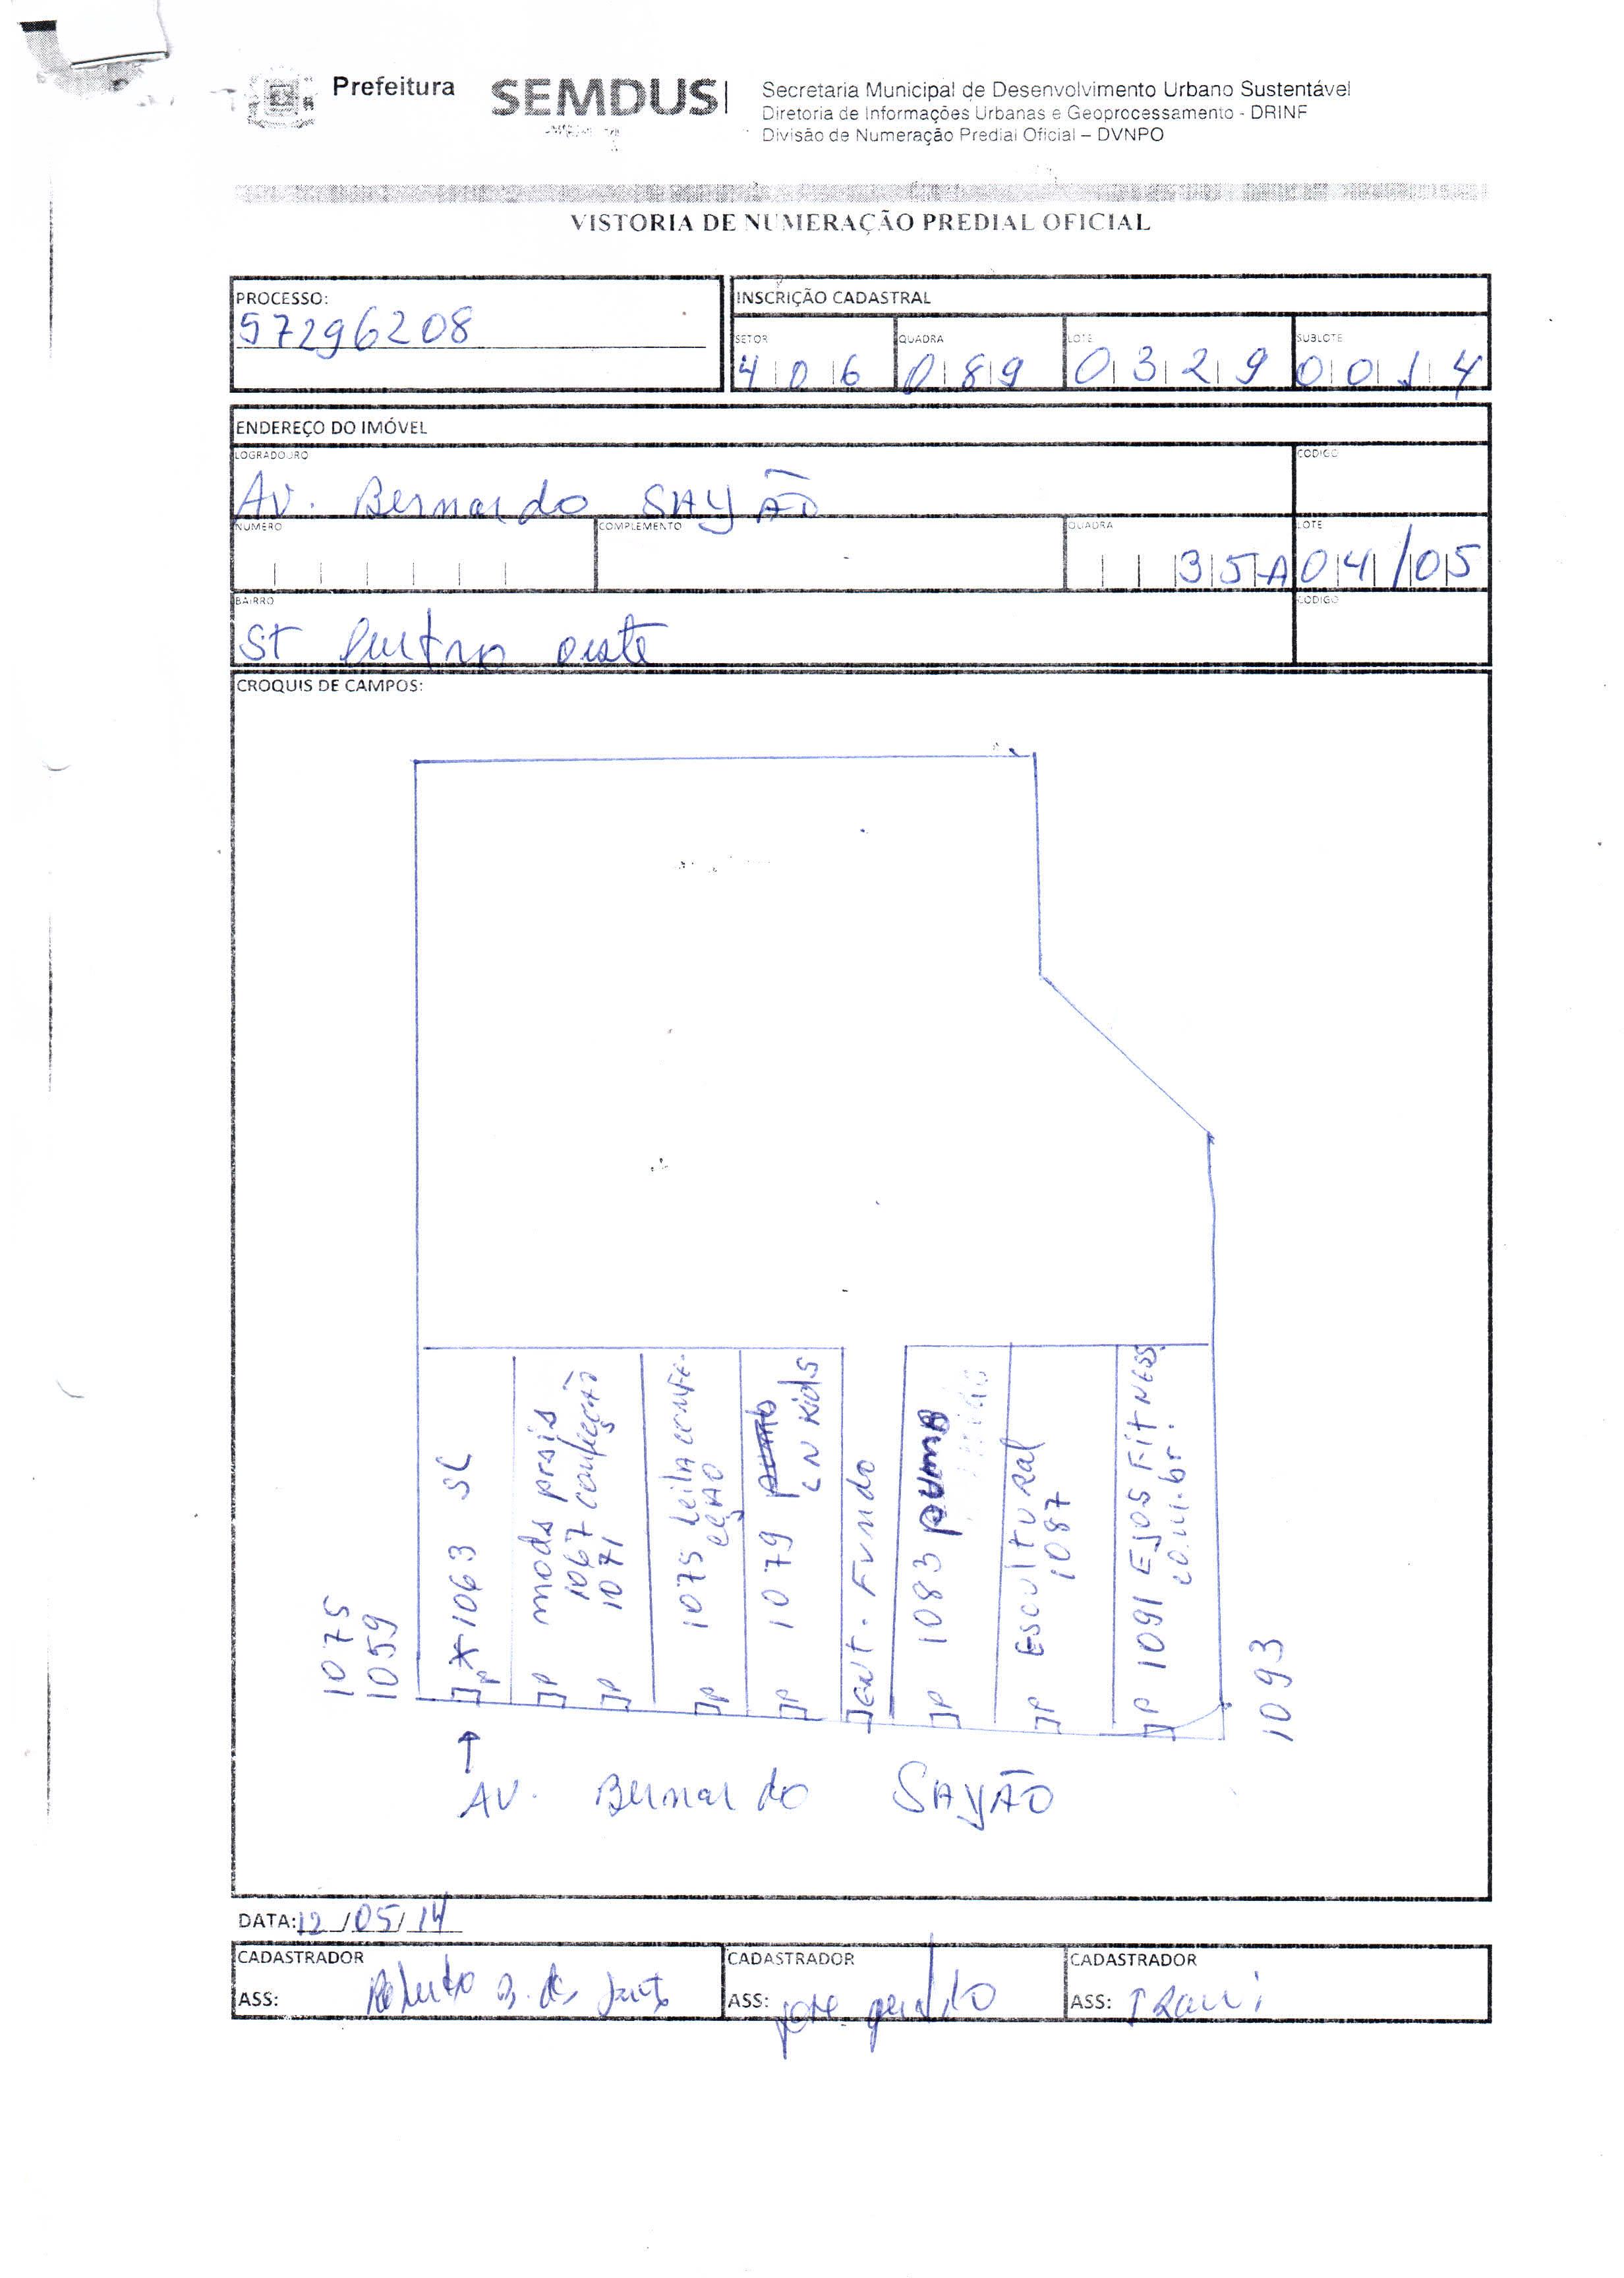 Prefeitura
SEMDUS
Secretaria Municipal de Desenvolvimento Urbano Sustentável
Diretoria de Informações Urbanas e Geoprocessamento - DRINF
Divisão de Numeração Predial Oficial – DVNPO
VISTORIA DE NUMERAÇÃO PREDIAL OFICIAL
PROCESSO:
57296208
INSCRIÇÃO CADASTRAL
SETOR QUADRA LOTE SUBLOTE
406 089 0329 0014
ENDEREÇO DO IMÓVEL
LOGRADOURO CODIGO
Av. Bernardo SAYÃO
NUMERO COMPLEMENTO QUADRA LOTE
35A 04/05
BAIRRO CODIGO
ST Centro oeste
CROQUIS DE CAMPOS:
1075
1059
P * 1063 SL
P moda
1067 confecção
P 1071
P 1075 Leila confe-
cção
P 1079
LN Kids
ENT. Fundo
P 1083 puma
P Escultural
1087
P 1091 EJOS FITNESS.
com.br
1093
AV. Bernardo SAYÃO
DATA: 12/05/14
CADASTRADOR CADASTRADOR CADASTRADOR
ASS: ASS: jose geraldo ASS: